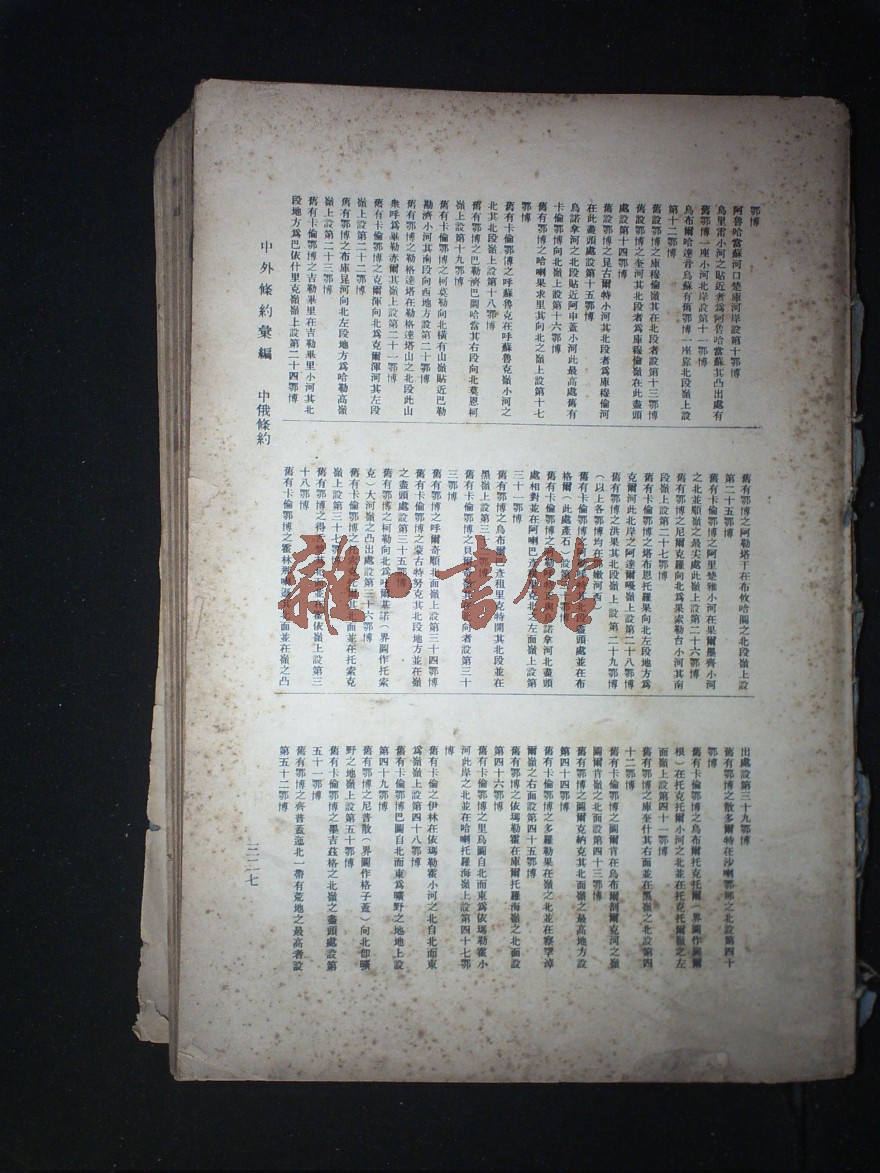 鄂博
阿魯哈當蘇河口楚庫河岸設第十鄂博
烏里雷小河之貼近者爲阿魯哈當蘇其凸出處有
舊鄂博一座小河北岸設第十一鄂博
烏布爾哈達音烏蘇有舊鄂博一座靠北段嶺上設
第十二鄂博
舊設鄂博之庫穆倫嶺其在北段者設第十三鄂博
舊設鄂博之奎河其北段者爲庫穆倫嶺在此盡頭
處設第十四鄂博
舊設鄂博之昆古爾特小河其北段者爲庫穆倫河
在此盡頭處設第十五鄂博
烏諾拿河之北段貼近阿申蓋小河此最高處舊有
卡倫鄂博向北嶺上設第十六鄂博
舊有鄂博之哈喇果求里其向北之嶺上設第十七
鄂博
舊有卡倫鄂博之呼蘇魯克在呼蘇魯克嶺小河之
北其北段嶺上設第十八鄂博
舊有鄂博之巴勒濟巴圖哈當其右段向北莫恩柯
嶺上設第十九鄂博
舊有卡倫鄂博之柯莫勒向北橫有山嶺貼近巴勒
勘濟小河其南段向西地方設第二十鄂博
舊有鄂博之勒格達塔在勒格達塔山之北段此山
衆呼爲畢勒赤爾其嶺上設第二十一鄂博
舊有卡倫鄂博之克爾渾向北爲克爾渾河其左段
嶺上設第二十二鄂博
舊有鄂博之布庫昆河向北左段地方爲哈勒高嶺
嶺上設第二十三鄂博
舊有卡倫鄂博之吉勒畢里在吉勒畢里小河其北
段地方爲巴依什里克嶺嶺上設第二十四鄂博
舊有鄂博之阿勒塔干在布攸哈圖之北段嶺上設
第二十五鄂博
舊有卡倫鄂博之阿里楚雅小河在果爾墨齊小河
之北並順嶺之最尖處此嶺上設第二十六鄂博
舊有鄂博之尼爾克羅向北爲果索勒台小河其南
段嶺上設第二十七鄂博
舊有卡倫鄂博之塔布恩托羅果向北左段地方爲
克爾河此北岸之阿達爾嘎嶺上設第二十八鄂博
舊有鄂博之洪果其北段嶺上設第二十九鄂博
（以上各鄂博均在嫩河西）
舊有卡倫鄂博其北段盡頭處並在布
格爾（此處產石）設第鄂博
舊有卡倫鄂博之諾拿河北盡頭
處相對並在阿喇巴之左面嶺上設第
三十一鄂博
舊有鄂博之烏布爾巴彥租里克特開其北段並在
黑嶺上設第三鄂博
舊有卡倫鄂博之貝在北向者設第三十
三鄂博
舊有鄂博之呼爾奇順北面嶺上設第三十四鄂博
舊有卡倫鄂博之蒙古特努克其北段地方並在嶺
之盡頭處設第三十五鄂博
舊有鄂博之柯勒向北爲吐爾基諾（界圖作托索
克）大河嶺之凸出處設第三十六鄂博
舊有卡倫鄂博之托索克托爾其北面並在托索克
嶺上設第三十七鄂博
舊有鄂博之得並在霍依嶺上設第三
十八鄂博
舊有卡倫鄂博之霍林那喇蓋其北面並在嶺之凸
出處設第三十九鄂博
舊有鄂博之散多爾特在沙喇鄂那之北設第四十
鄂博
舊有卡倫鄂博之烏布爾托克托爾（界圖作圖爾
根）在托克托爾小河之北並在托克托爾嶺之左
面嶺上設第四十一鄂博
舊有鄂博之庫奎什其右面並在黑嶺之北設第四
十二鄂博
舊有卡倫鄂博之圖爾肯在烏布爾圖爾克河之嶺
圖爾肯嶺之北面設第四十三鄂博
舊有鄂博之圖爾克納克其北面嶺之最高地方設
第四十四鄂博
舊有卡倫鄂博之多羅勒果在嶺之北並在察罕淖
爾嶺之右面設第四十五鄂博
舊有鄂博之依瑪勒霍在庫爾托羅海嶺之北面設
第四十六鄂博
舊有卡倫鄂博之里烏圖自北而東爲依瑪勒霍小
河此岸之北並在哈喇托羅海嶺上設第四十七鄂
博
舊有卡倫之伊林在依瑪勒霍小河之北自北而東
爲嶺嶺上設第四十八鄂博
舊有卡倫鄂博巴圖自北而東爲曠野之地地上設
第四十九鄂博
舊有鄂博之尼普散（界圖作格子蓋）向北卽曠
野之地嶺上設第五十鄂博
舊有卡倫鄂博之墨吉茲格之北嶺之盡頭處設第
五十一鄂博
舊有鄂博之齊普蓋迤北一帶有荒地之最高者設
第五十二鄂博
中外條約彙編 中俄條約
三二七
雜·書館